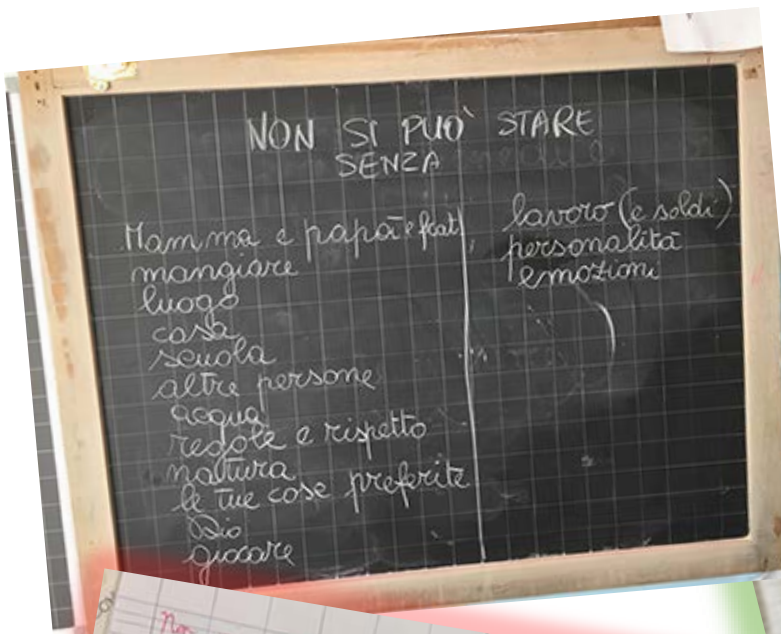 NON SI PUÒ STARE
SENZA
Mamma e papà e frat.
mangiare
luogo
casa
scuola
altre persone
acqua
regole e rispetto
natura
le tue cose preferite
Dio
giocare
lavoro (e soldi)
personalità
emozioni